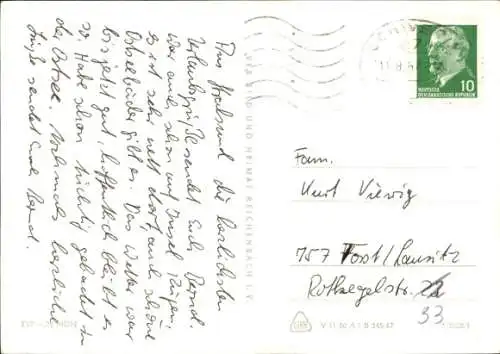 Aus Stralsund die herzlichsten
Urlaubsgrüße sendet Euch Bernd.
War auch schon auf Insel Rügen.
Es ist sehr nett dort, auch schöne
Ostseebäder gibt es. Das Wetter war
bis jetzt gut, hoffentlich bleibt es
so. Habe schon tüchtig gebadet in
der Ostsee. Nochmals herzliche
Grüße sendet Euch Bernd.
BILD UND HEIMAT REICHENBACH I. V.
10
DEUTSCHE
DEMOKRATISCHE REPUBLIK
Fam.
Kurt Viewig
757 Forst/Lausitz
Rotkegelstr. 22
33
V 11 50 A 1 B 345/67